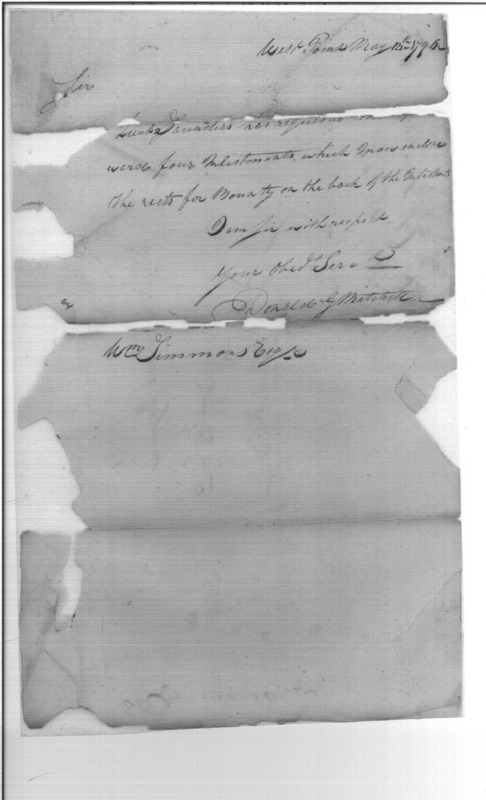 West Point May 15th 1796
Sir
Lieut Saunders has requested
were four Inlistments, which I now enclose
the rects for Bounty on the back of the Inlistments
I am Sir with respect
Your Obedt Serv
Donald G Mitchell
Wm Simmons Esqr